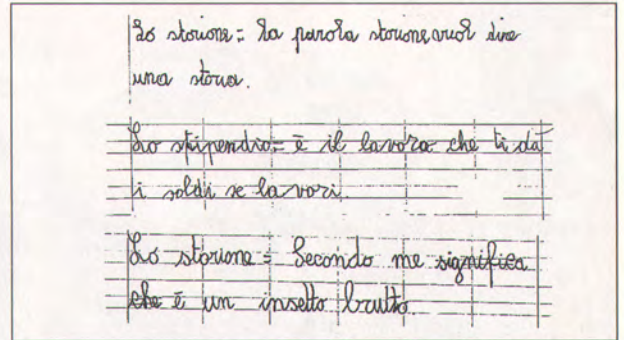 Lo storione = La parola storione vuol dire
una storia.
Lo stipendio = è il lavoro che ti dà
i soldi se lavori.
Lo storione = Secondo me significa
che è un insetto brutto.